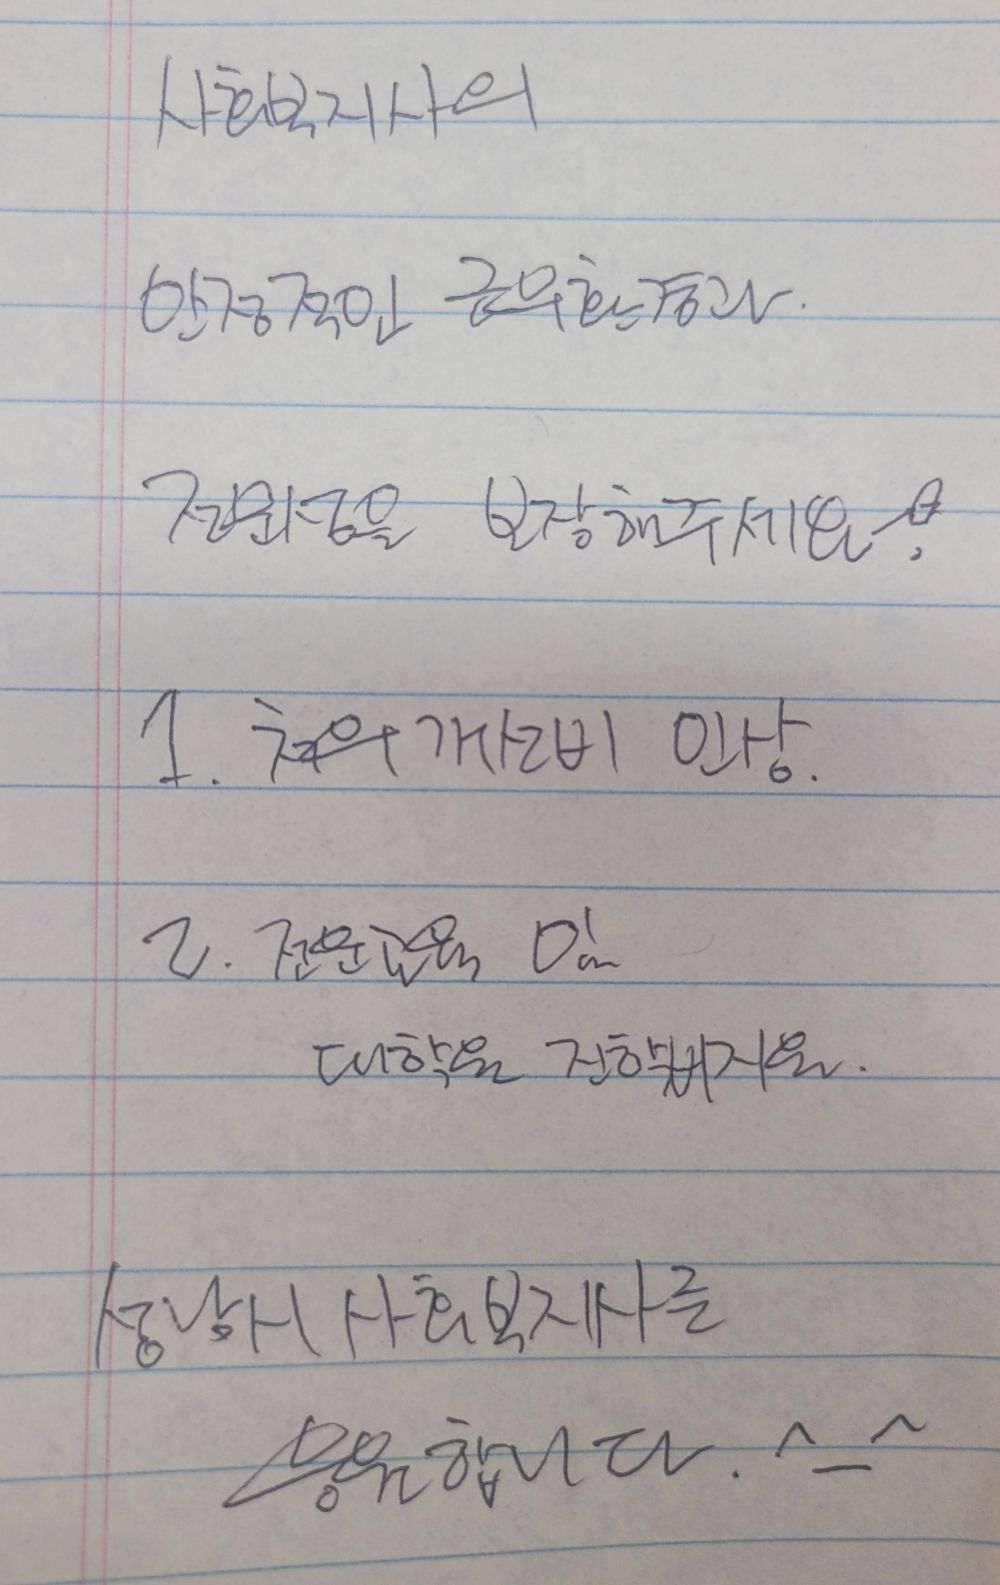 사회복지사의
안정적인 근무환경과.
전문성을 보장해주세요!
1. 처우개선비 인상.
2. 전문교육 및
대학원 진학비지원.
성남시 사회복지사를
응원합니다. ^_^